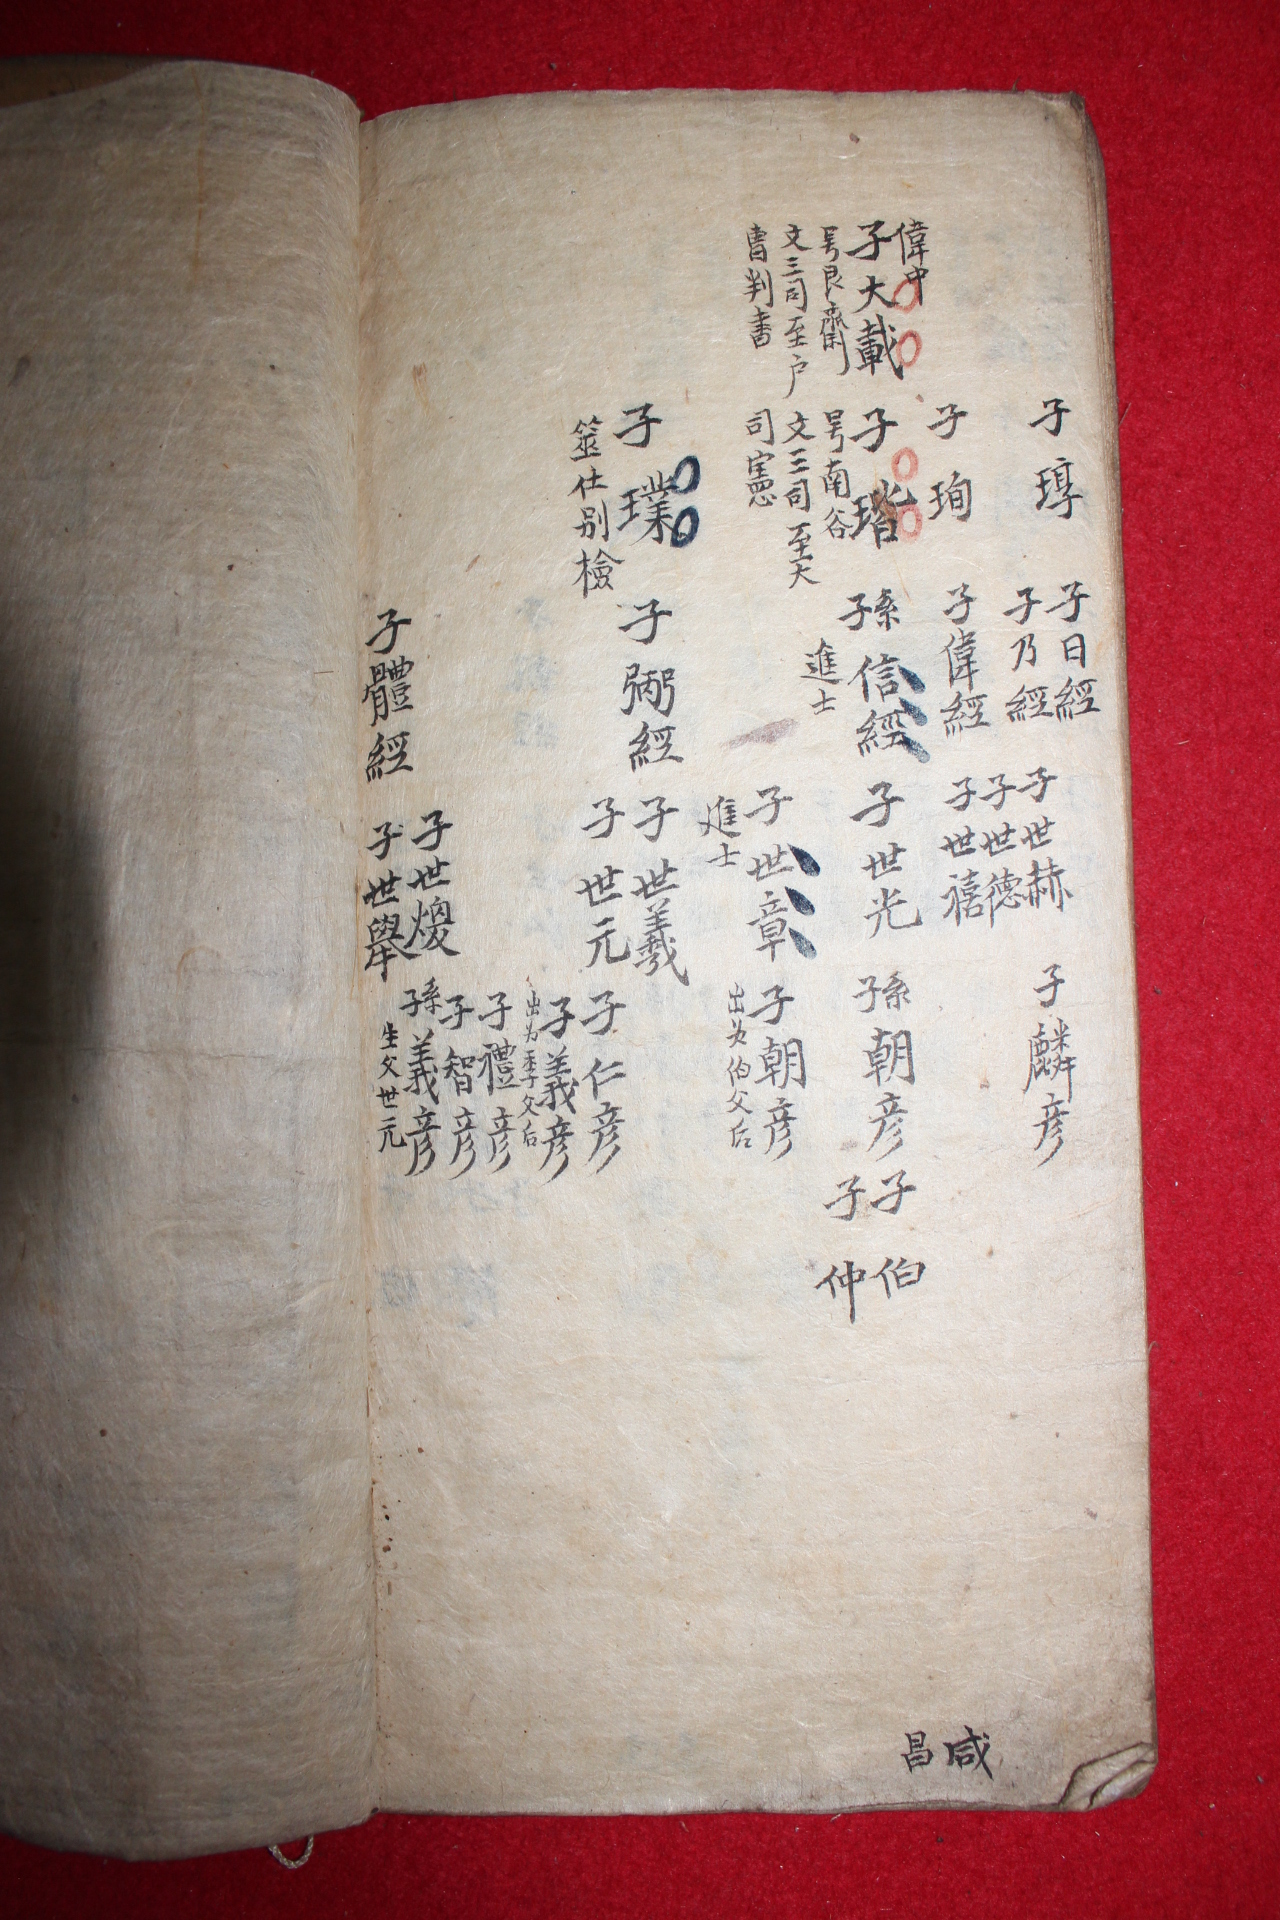 偉中
子大載
号艮齋
文三司至户
曺判書
子㻐
子珣
子瑎
号南谷
文三司至大
司憲
子璞
筮仕别檢
子日經
子乃經
子偉經
孫子信經
進士
子弼經
子體經
子世赫
子世德
子世禧
子世光
子世章
進士
子世羲
子世元
子世煥
子世舉
子麟彦
孫子朝彦
子朝彦
出为伯父后
子仁彦
子義彦
出为季父后
子禮彦
子智彦
孫子義彦
生父世元
子伯
子仲
咸昌